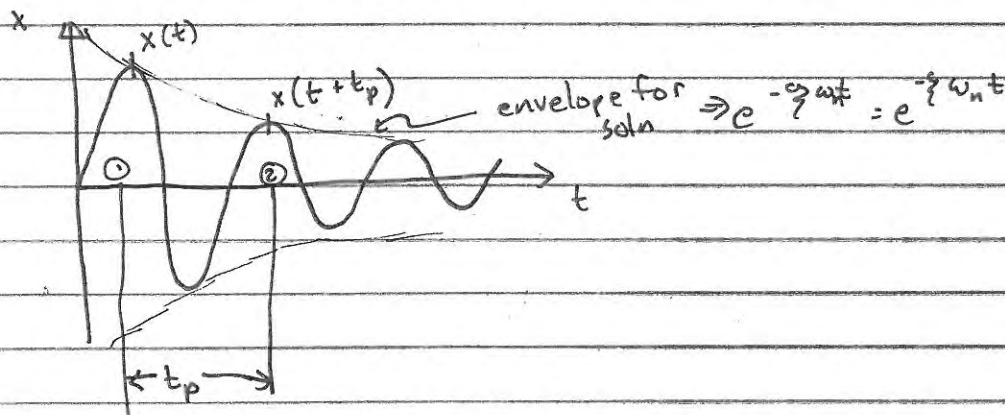 x
x(t)
x(t+tp)
envelope for soln ⇒ e^-ξωnt = e^-ξωnt
① ②
t
tp